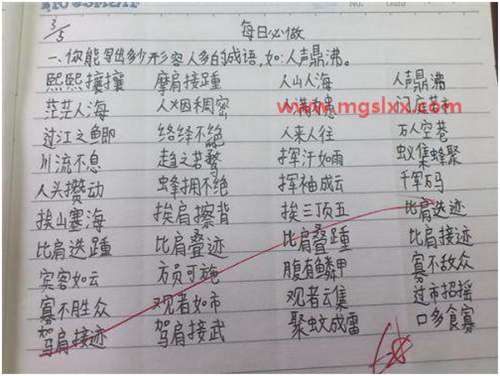 3/5
每日必做
一、你能写出多少形容人多的成语,如:人声鼎沸。
熙熙攘攘 摩肩接踵 人山人海 人声鼎沸
茫茫人海 人烟稠密 人满为患 门庭若市
www.mgslxx.com
过江之鲫 络绎不绝 人来人往 万人空巷
川流不息 趋之若鹜 挥汗如雨 蚁集蜂聚
人头攒动 蜂拥不绝 挥袖成云 千军万马
挨山塞海 挨肩擦背 挨三顶五 比肩迭迹
比肩迭踵 比肩叠迹 比肩叠踵 比肩接迹
宾客如云 方员可施 腹有鳞甲 寡不敌众
寡不胜众 观者如市 观者云集 过市招摇
驾肩接迹 驾肩接武 聚蚊成雷 口多食寡